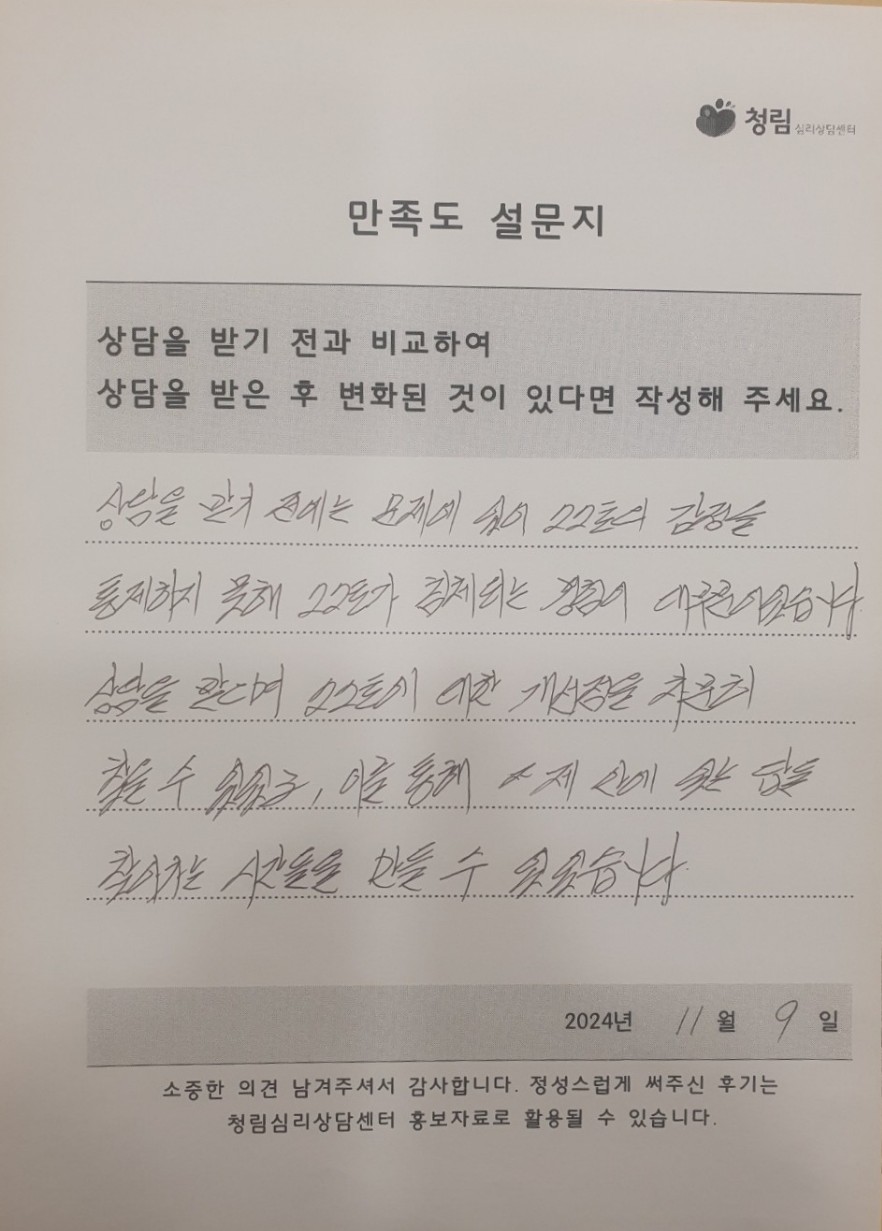 청림 심리상담센터
만족도 설문지
상담을 받기 전과 비교하여
상담을 받은 후 변화된 것이 있다면 작성해 주세요.
상담을 받기 전에는 문제에 있어 스스로의 감정을
통제하지 못해 스스로가 침체되는 경험이 대부분이었습니다
상담을 받다며 스스로에 대한 개선점을 차분히
찾을 수 있었고, 이를 통해 제 안에 있는 답을
찾아가는 시간들을 만들 수 있었습니다.
2024년 11월 9일
소중한 의견 남겨주셔서 감사합니다. 정성스럽게 써주신 후기는
청림심리상담센터 홍보자료로 활용될 수 있습니다.